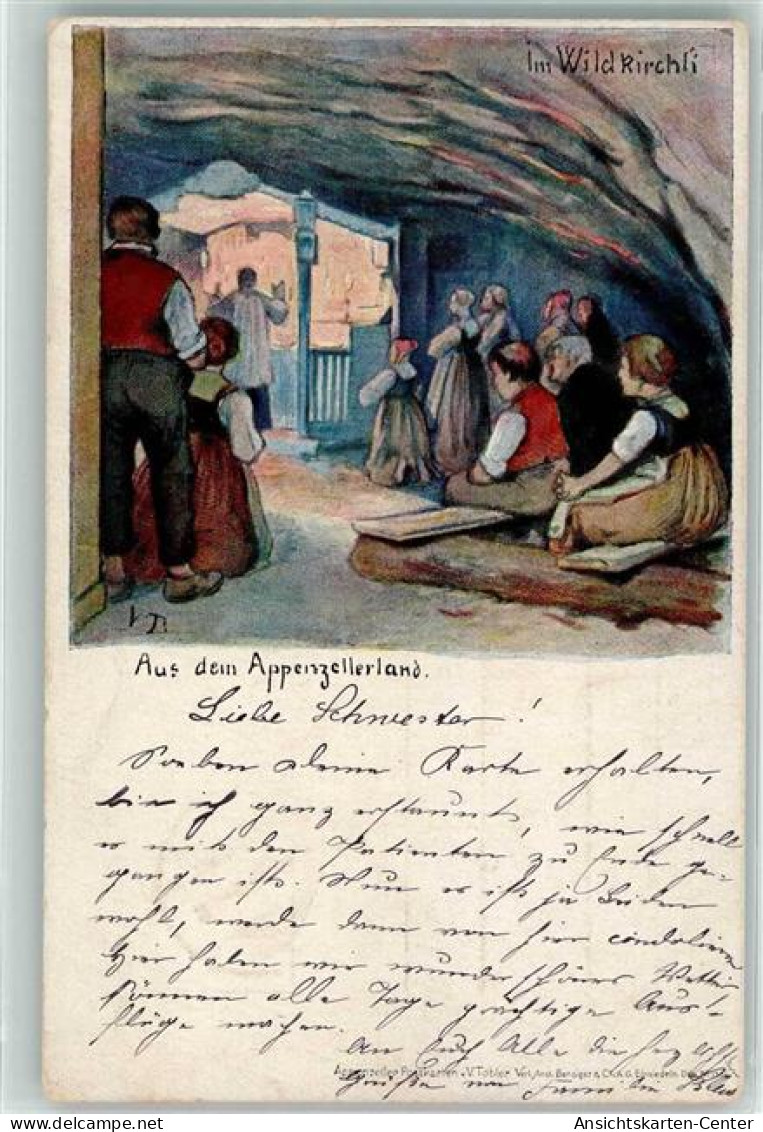 Im Wildkirchli
VT
Aus dem Appenzellerland.
Liebe Schwester!
Soeben deine Karte erhalten,
bin ich ganz erstaunt, wie schnell
es mit den Patienten zu Ende ge-
gangen ist. Nun es ist ja beiden
wohl, werde dann von hier condolieren
Hier haben wir wunderschönes Wetter
können alle Tage prächtige Aus-
flüge machen.
An Euch Alle die herzl.
Appenzeller Postkarten v. V. Tobler Verl. Anst. Benziger & Co. A.G. Einsiedeln.
Grüße von
Ansichtskarten-Center